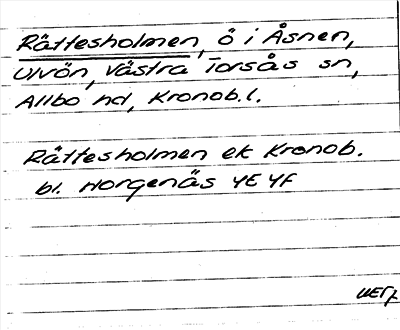 Rättesholmen, ö i Åsnen,
Ulvön, Västra Torsås sn,
Allbo hd, Kronob.l.
Rättesholmen ek Kronob.
bl. Horgenäs 4E 4F